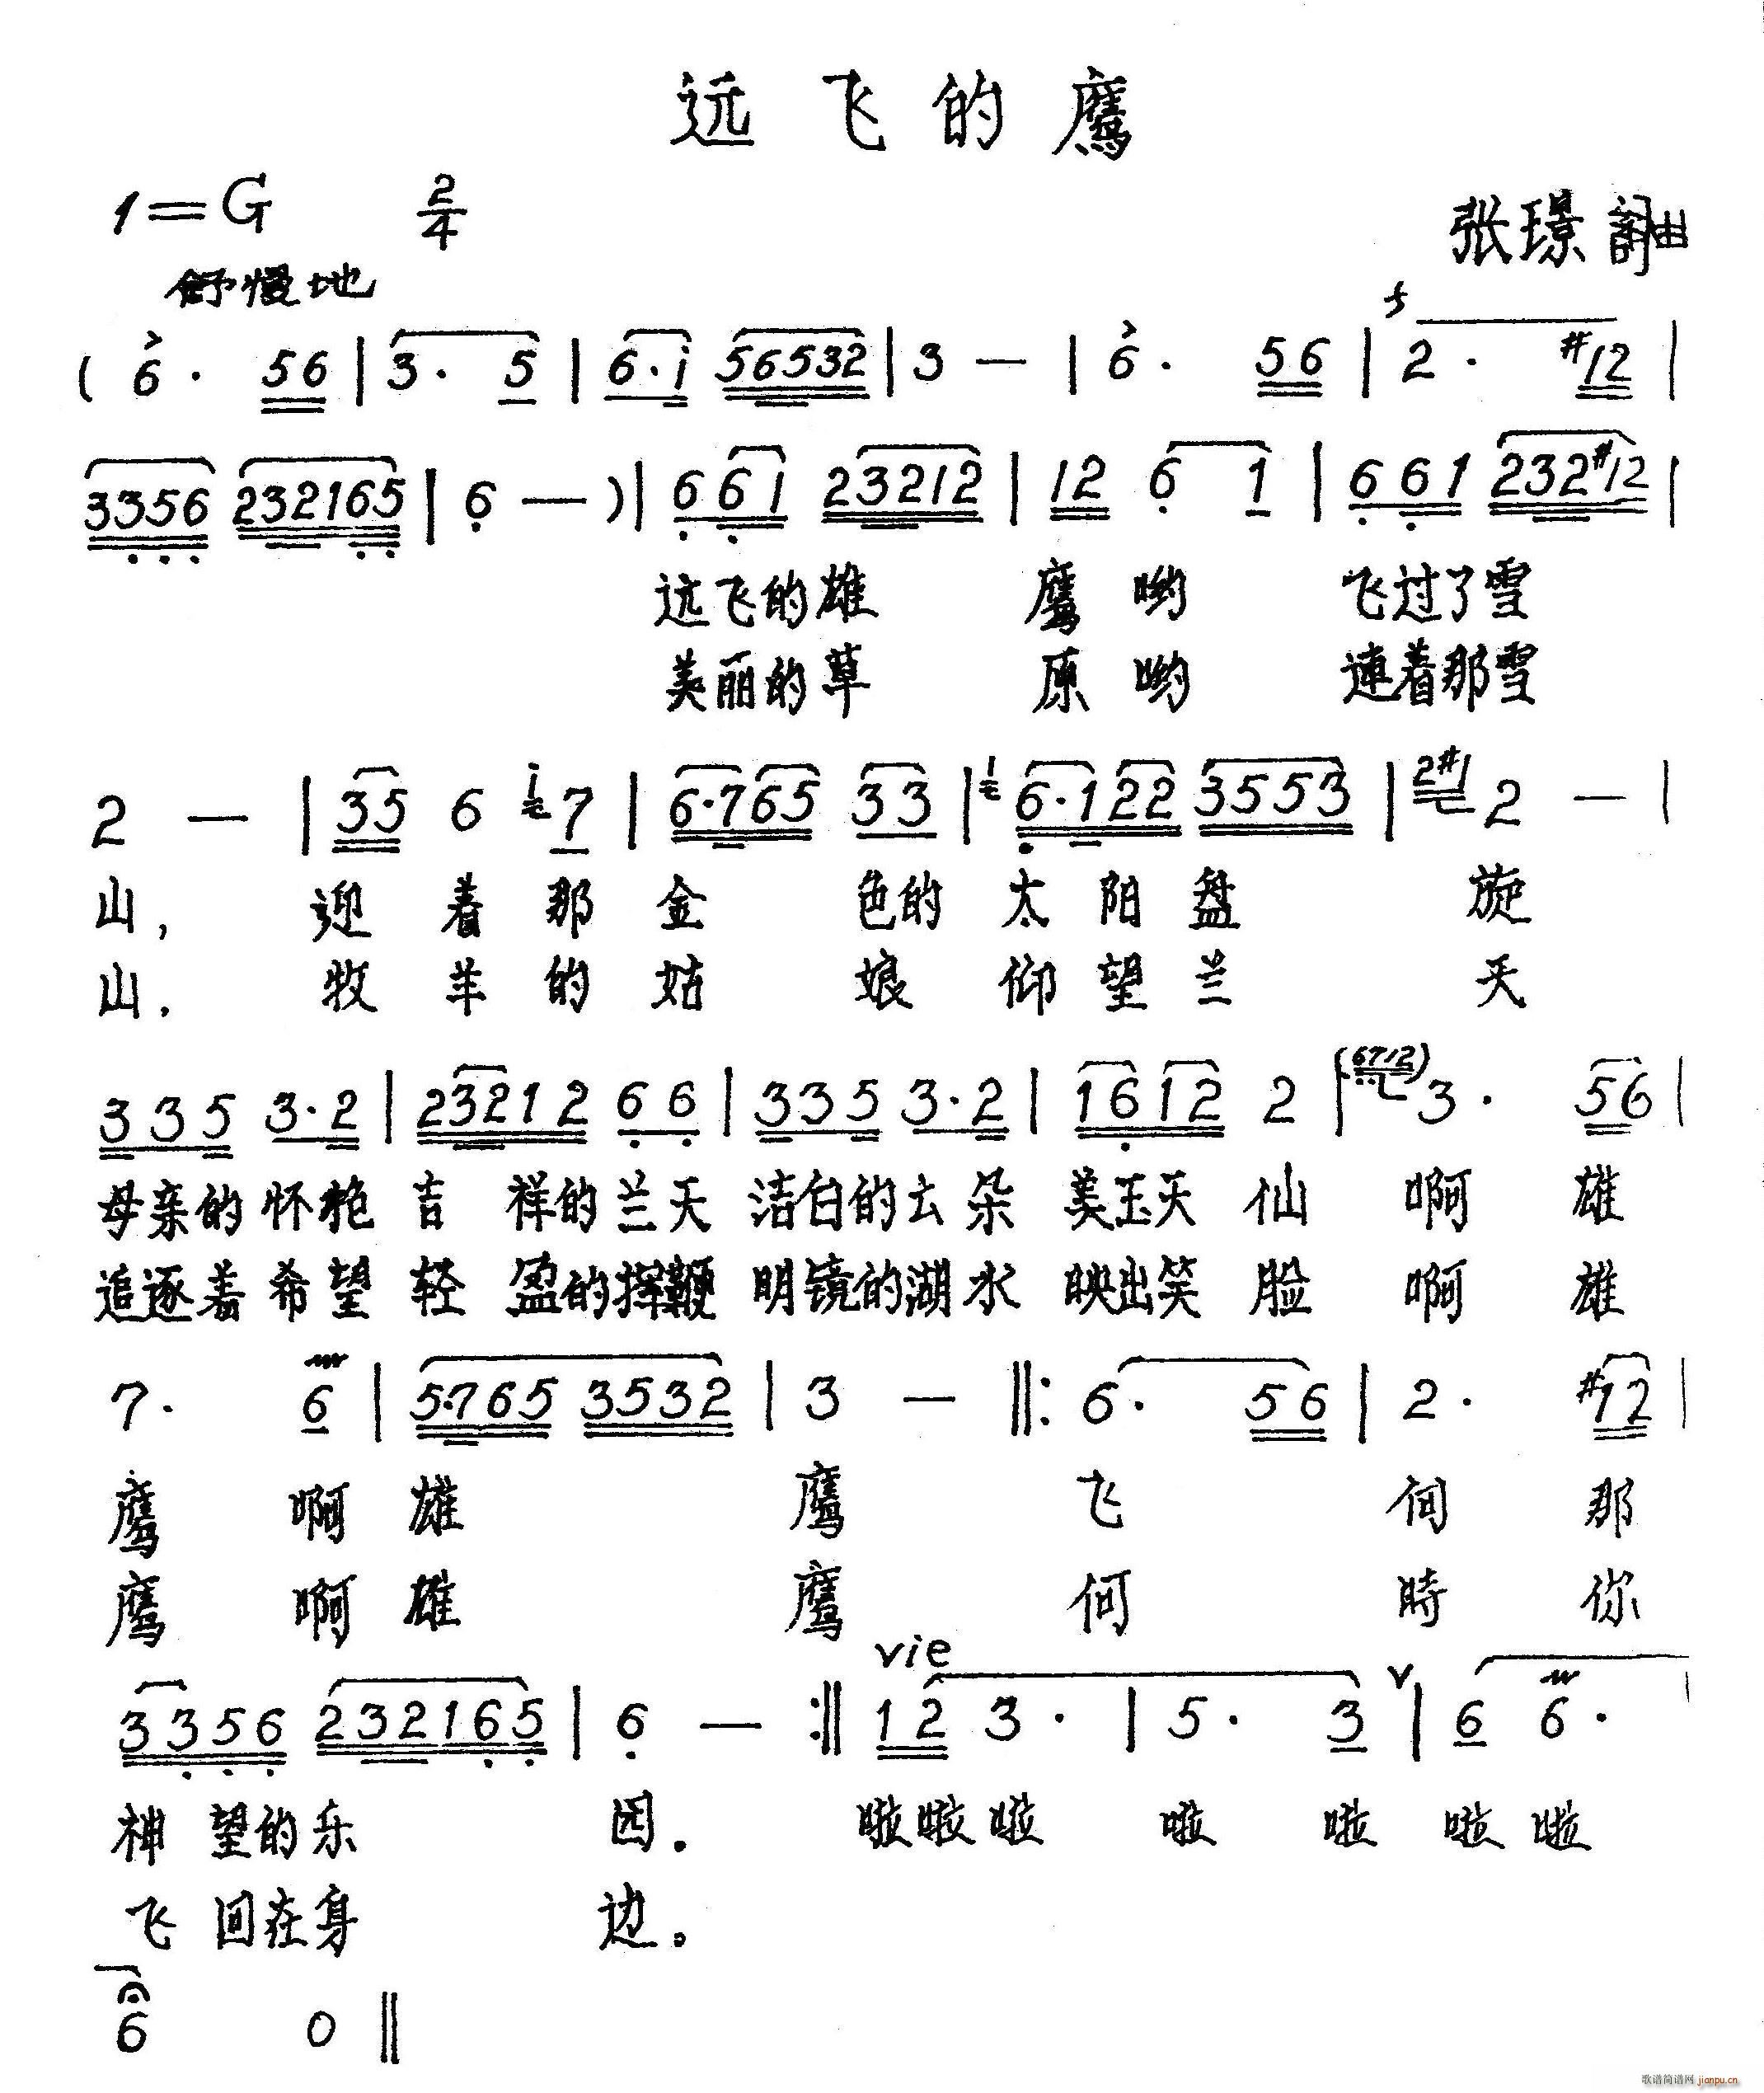 远飞的鹰
1=G 2/4
张璟 詞曲
舒慢地
( 6· 56 | 3· 5 | 6·i 56532 | 3 — | 6· 56 | 2· #12 |
3356 232165 | 6 — ) | 661 23212 | 12 6 1 | 661 232#12 |
远飞的雄 鹰 哟 飞过了雪
美丽的草 原 哟 連着那雪
2 — | 35 6 i 7 | 6·765 33 | 1 6·122 3553 | 2#1 2 — |
山, 迎 着 那 金 色的 太 阳 盘 旋
山, 牧 羊 的 姑 娘 仰 望 兰 天
335 3·2 | 23212 66 | 335 3·2 | 1612 2 | (6712) 3· 56 |
母亲的怀抱 吉 祥的兰天 洁白的云朵 美玉天 仙 啊 雄
追逐着希望 轻 盈的挥鞭 明镜的湖水 映出笑 脸 啊 雄
7· 6 | 5·765 3532 | 3 — ‖: 6· 56 | 2· #12 |
鹰 啊 雄 鹰 飞 向 那
鹰 啊 雄 鹰 何 時 你
vie
3356 232165 | 6 — :‖ 12 3· | 5· 3 V | 6 6· |
神 望的乐 园. 啦啦啦 啦 啦 啦 啦
飞 回在身 边。
6 0 ‖
歌谱简谱网 jianpu.cn